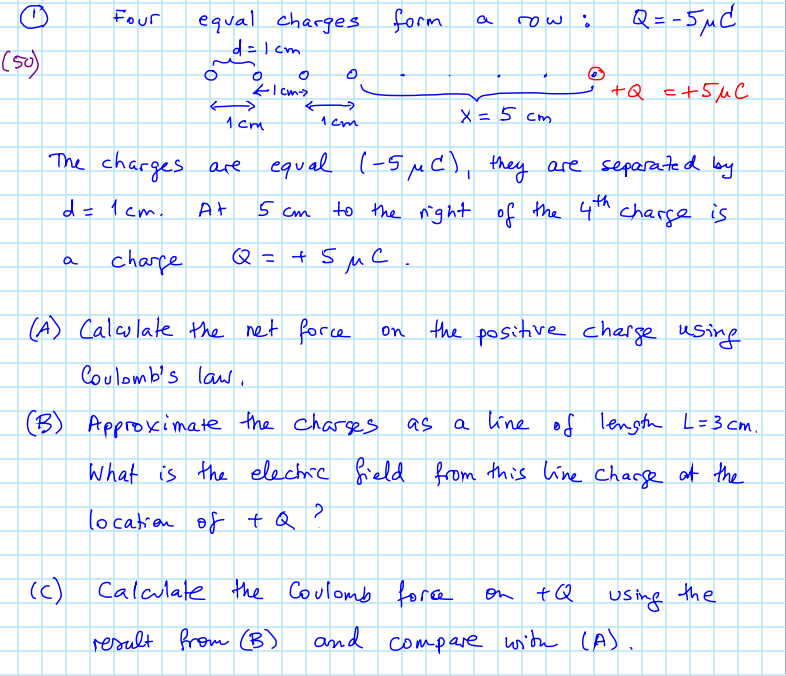 ① Four equal charges form a row : Q = -5 μC
(50)
d = 1 cm
1 cm
+Q = +5 μC
1 cm 1 cm x = 5 cm
The charges are equal (-5 μC), they are separated by
d = 1 cm. At 5 cm to the right of the 4th charge is
a charge Q = + 5 μC .
(A) Calculate the net force on the positive charge using
Coulomb's law.
(B) Approximate the charges as a line of length L = 3 cm.
What is the electric field from this line charge at the
location of + Q ?
(C) Calculate the Coulomb force on +Q using the
result from (B) and compare with (A).